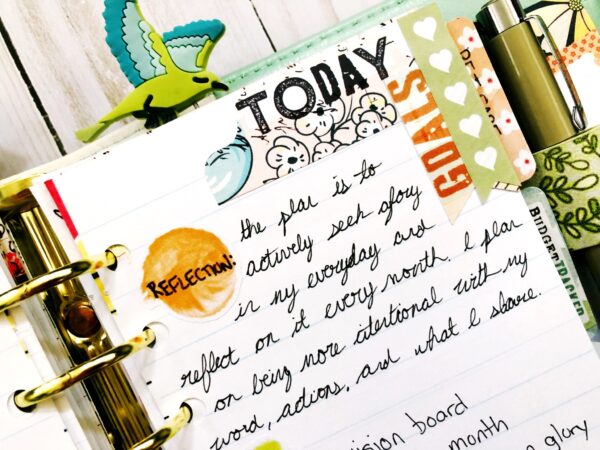 TODAY
GOALS
BUDGET TRACKER
REFLECTION:
the plan is to
actively seek glory
in my everyday and
reflect on it every month. I plan
on being more intentional with my
word, actions, and what I share.
vision board
month
glory